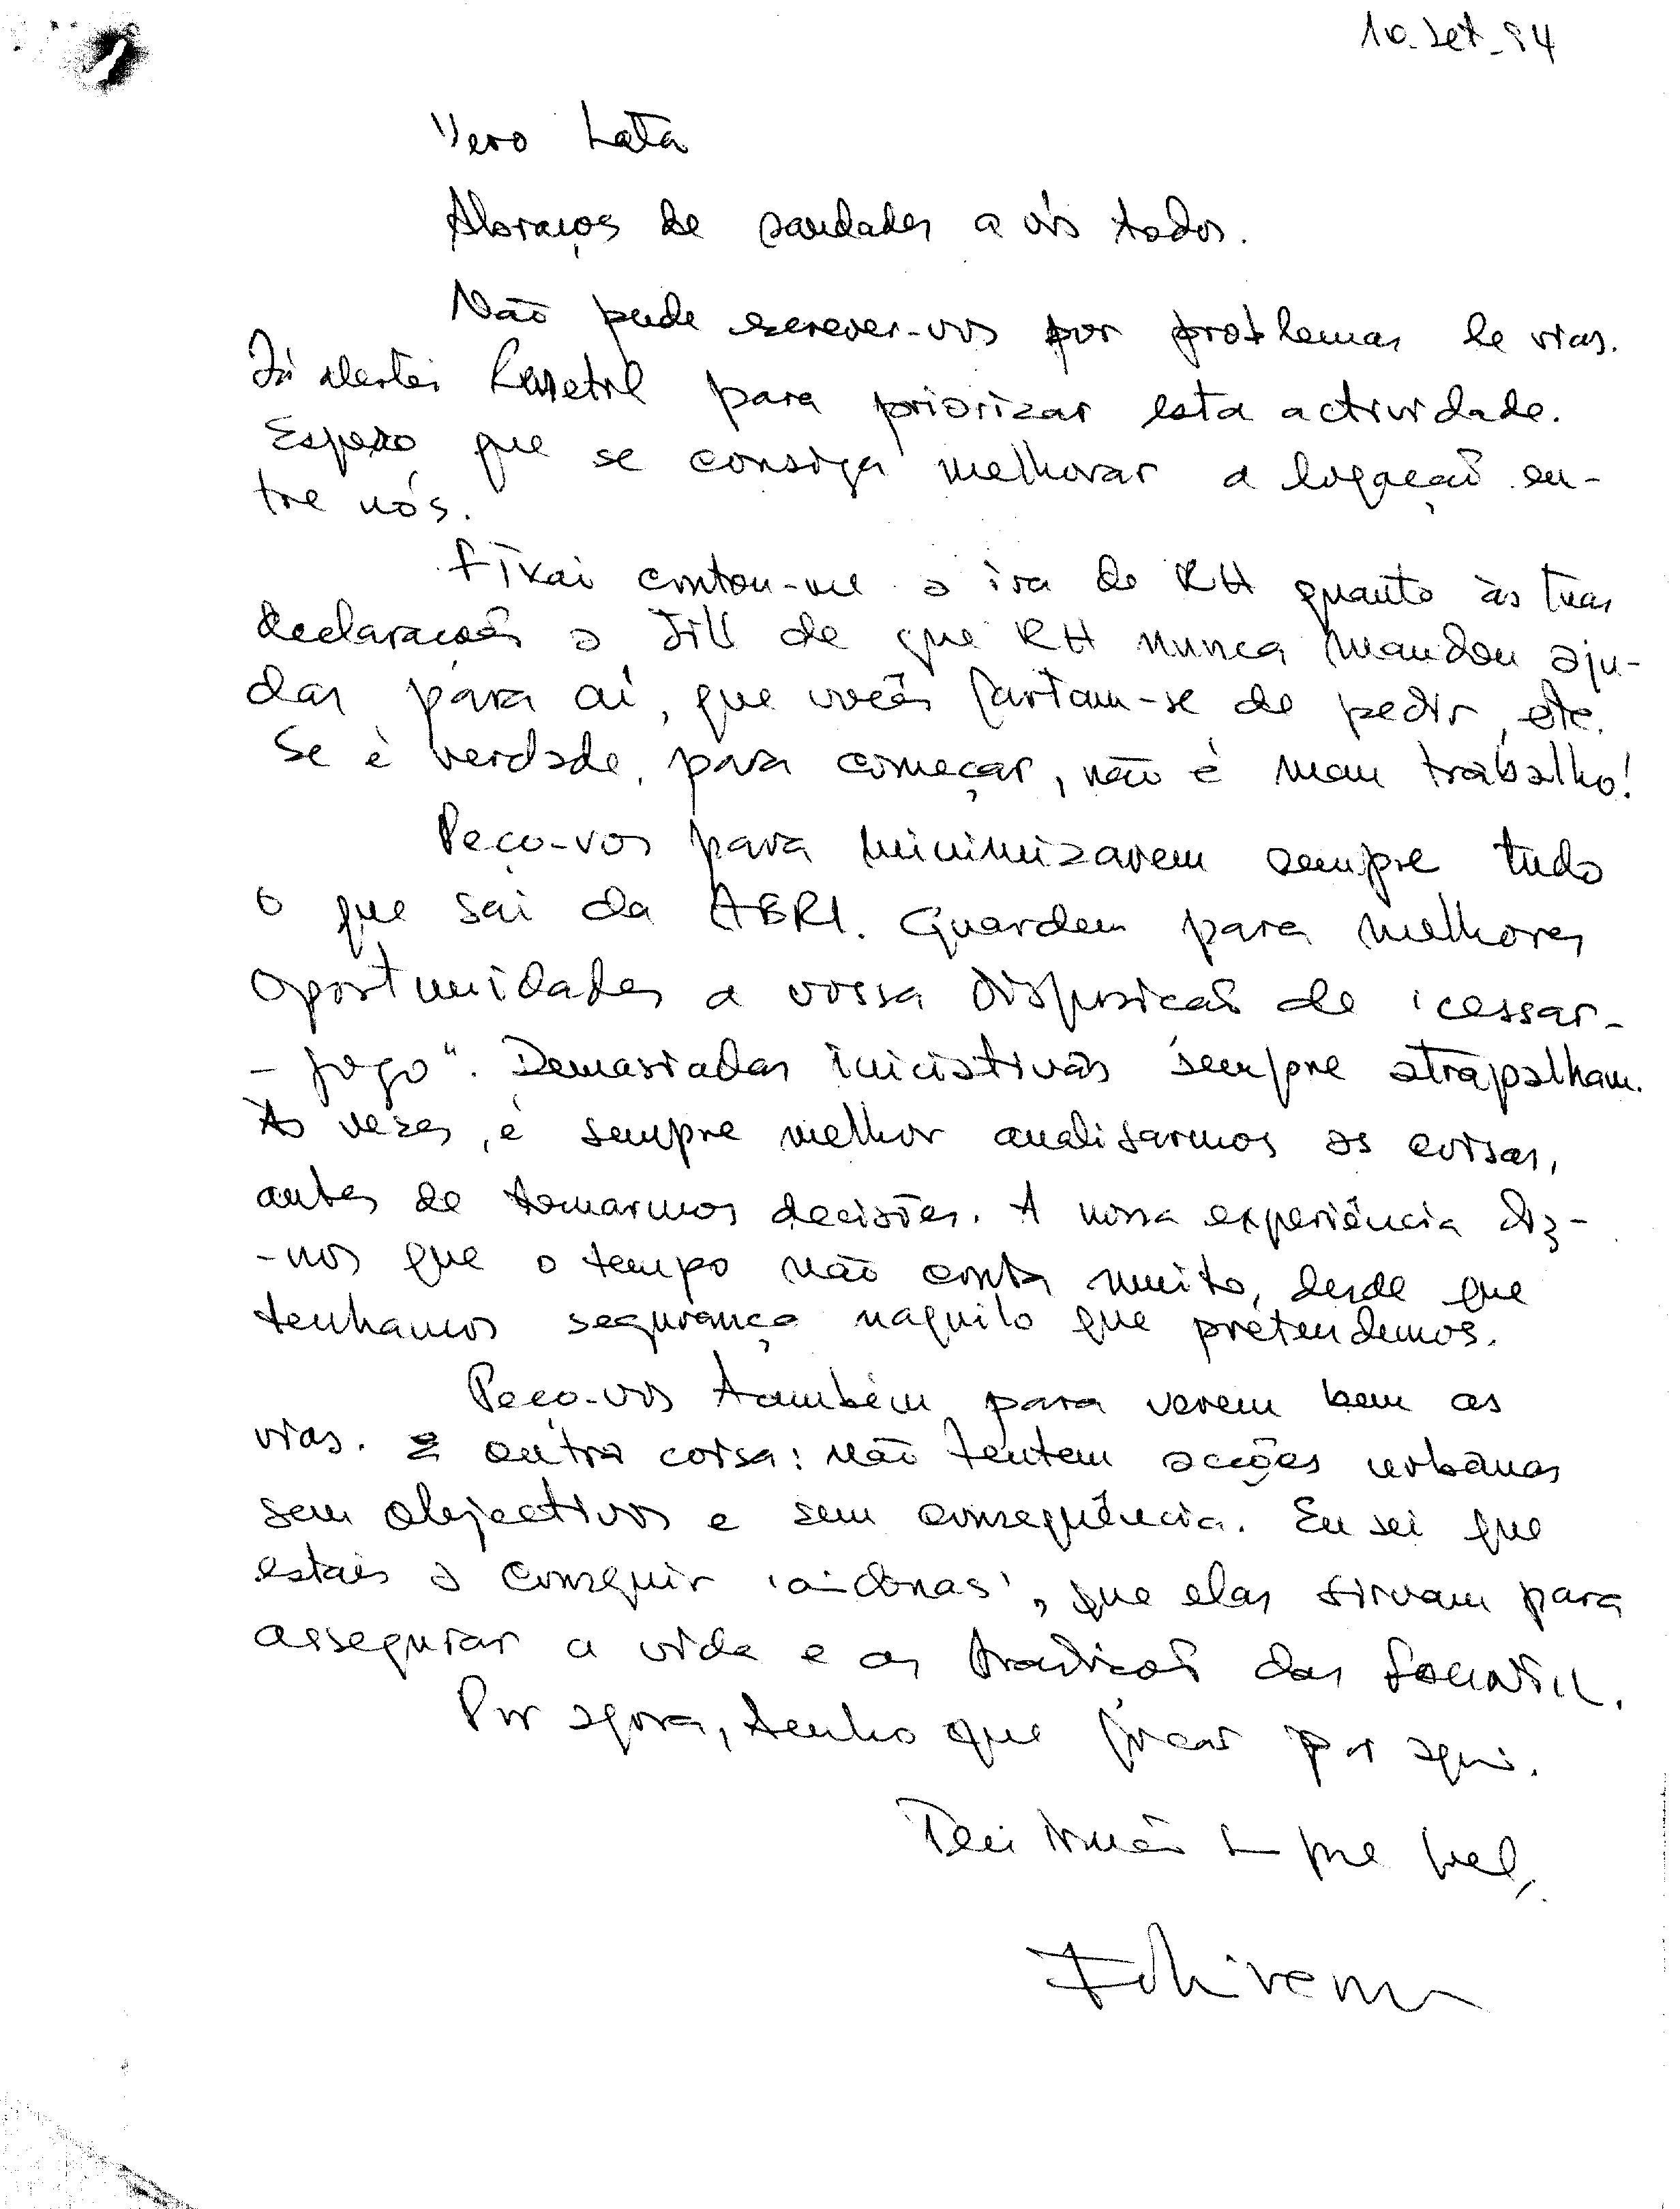 10-Set-94
Vero Lata
Abraços de saudades a vós todos.
Não pude escrever-vos por problemas de vias.
Já alertei para priorizar esta actividade.
Espero que se consiga melhorar a ligação en-
tre nós.
Fixai contou-me a ira de RH quanto às tuas
declarações a Jill de que RH nunca mandou aju-
das para aí, que vocês fartam-se de pedir, etc.
Se é verdade, para começar, não é mau trabalho!
Peço-vos para minimizarem sempre tudo
o que sai da ABRI. Guardem para melhores
oportunidades a vossa disposição de 'cessar-
-fogo". Demasiadas iniciativas sempre atrapalham.
Às vezes, é sempre melhor analisarmos as coisas,
antes de tomarmos decisões. A nossa experiência diz-
-nos que o tempo não conta muito, desde que
tenhamos segurança naquilo que pretendemos.
Peço-vos também para verem bem as
vias. E outra coisa: não tentem acções urbanas
sem objectivos e sem consequência. Eu sei que
estais a conseguir 'ai-donas', que elas sirvam para
assegurar a vida e as das
Por agora, tenho que ficar por aqui.
Teu Irmão sempre fiel,